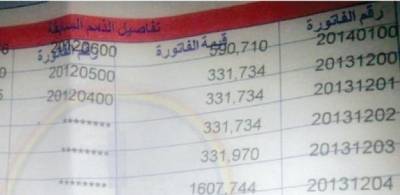 رقم الفاتورة
تفاصيل الذمم السابقة
قيمة الفاتورة
رقم الفاتورة
20140100 590,710 20120600
20131200 331,734 20120500
20131201 331,734 20120400
20131202 331,734 ********
20131203 331,970 ********
20131204 1607,744 ********